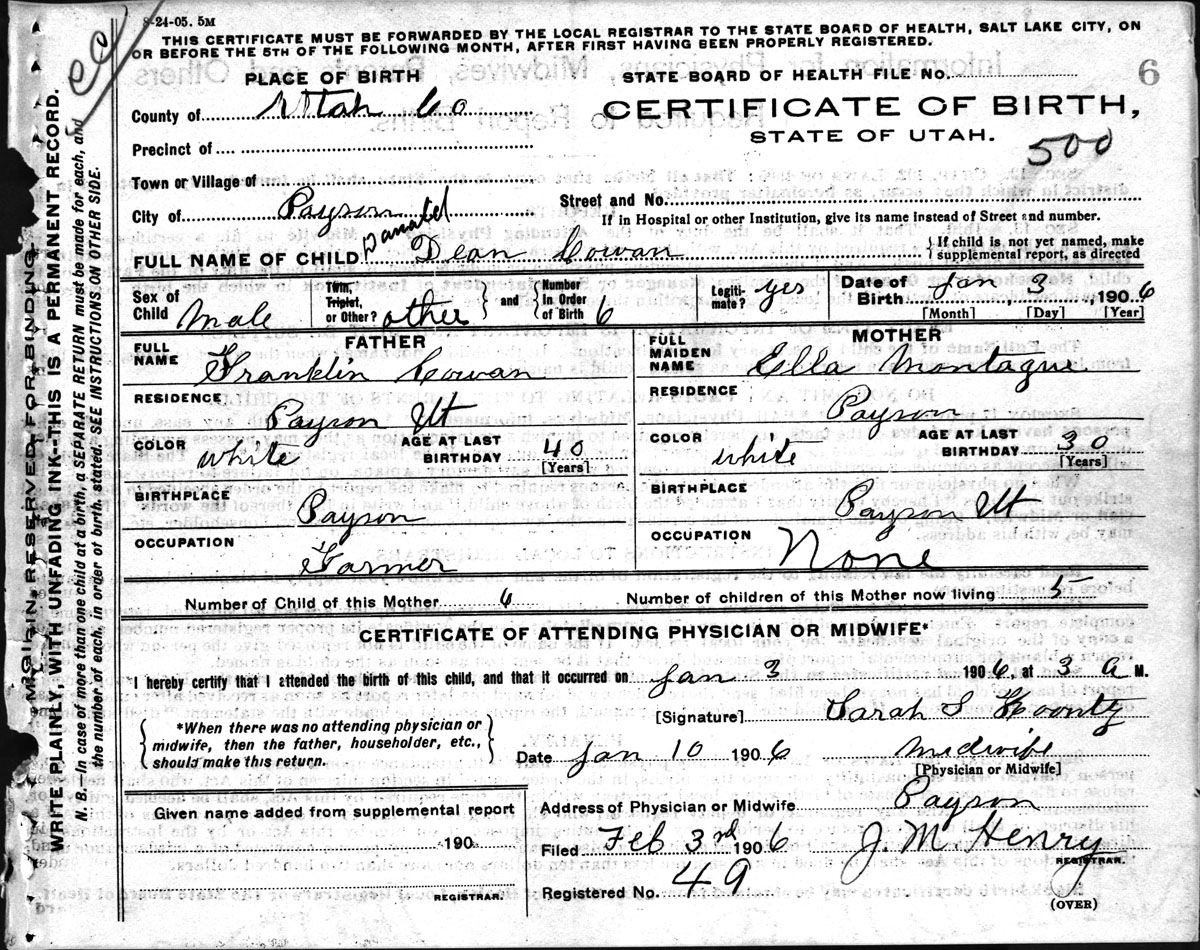 8-24-05. 5M
THIS CERTIFICATE MUST BE FORWARDED BY THE LOCAL REGISTRAR TO THE STATE BOARD OF HEALTH, SALT LAKE CITY, ON
OR BEFORE THE 5TH OF THE FOLLOWING MONTH, AFTER FIRST HAVING BEEN PROPERLY REGISTERED.
PLACE OF BIRTH
STATE BOARD OF HEALTH FILE No.
6
County of Utah Co
CERTIFICATE OF BIRTH,
STATE OF UTAH.
500
Precinct of
Town or Village of
Street and No.
City of Payson
If in Hospital or other Institution, give its name instead of Street and number.
FULL NAME OF CHILD Donald Dean Cowan
If child is not yet named, make
supplemental report, as directed
Sex of Child Male
Twin, Triplet, or Other? other
and
Number In Order of Birth 6
Legiti-mate? yes
Date of Birth Jan 3, 1906
[Month] [Day] [Year]
FATHER
FULL NAME Franklin Cowan
RESIDENCE Payson Ut
COLOR White
AGE AT LAST BIRTHDAY 40
[Years]
BIRTHPLACE Payson
OCCUPATION Farmer
MOTHER
FULL MAIDEN NAME Ella Montague
RESIDENCE Payson
COLOR White
AGE AT LAST BIRTHDAY 30
[Years]
BIRTHPLACE Payson Ut
OCCUPATION None
Number of Child of this Mother 6
Number of children of this Mother now living 5
CERTIFICATE OF ATTENDING PHYSICIAN OR MIDWIFE*
I hereby certify that I attended the birth of this child, and that it occurred on Jan 3 1906, at 3 a M.
[Signature] Sarah S Koontz
*When there was no attending physician or
midwife, then the father, householder, etc.,
should make this return.
Date Jan 10 1906
Midwife
[Physician or Midwife]
Given name added from supplemental report
190
REGISTRAR.
Address of Physician or Midwife Payson
Filed Feb 3rd 1906
J. M. Henry
REGISTRAR.
Registered No. 49
(OVER)
MARGIN RESERVED FOR BINDING.
WRITE PLAINLY, WITH UNFADING INK—THIS IS A PERMANENT RECORD.
N. B. In case of more than one child at a birth, a SEPARATE RETURN must be made for each, and
the number of each, in order of birth, stated. SEE INSTRUCTIONS ON OTHER SIDE.